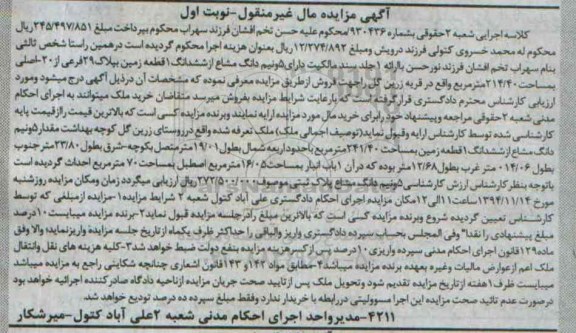 آگهی مزایده مال غیرمنقول-نوبت اول
کلاسه اجرایی شعبه ۲حقوقی بشماره ۹۳۰۴۳۶/محکوم علیه حسن تخم افشان فرزند سهراب محکوم بپرداخت مبلغ ۲۴۵/۴۹۷/۸۵۱ریال
محکوم له محمد خسروی کتولی فرزند درویش ومبلغ ۱۲/۲۷۴/۸۹۲ ریال بعنوان هزینه اجرا محکوم گردیده است درهمین راستا شخص ثالثی
بنام سهراب تخم افشان فرزند نورحسن باارائه ۱جلد سند مالکیت دارای۵ونیم دانگ مشاع ازششدانگ۱قطعه زمین بپلاک۲۹فرعی از۲۰-اصلی
بمساحت۲۱۴/۴۰مترمربع واقع در قریه زرین گل را جهت فروش ازطریق مزایده معرفی نموده که مشخصات آن درذیل آگهی درج میشود ومورد
ارزیابی کارشناس محترم دادگستری قرارگرفته است که بارعایت شرایط مزایده بفروش میرسد متقاضیان خرید ملک میتوانند به اجرای احکام
مدنی شعبه ۲حقوقی مراجعه وپیشنهاد خود رابرای خرید مال مورد مزایده ارایه نمایند وبرنده مزایده کسی است که بالاترین قیمت رااز قیمت پایه
کارشناسی شده توسط کارشناس ارایه وقبول نماید(توصیف اجمالی ملک)ملک تعرفه شده واقع درروستای زرین گل کوچه بهداشت مقدار۵ونیم
دانگ مشاع ازششدانگ۱قطعه زمین بمساحت ۲۴۱/۴۰مترمربع باحدود اربعه شمال بطول۱۹/۰۱مترمتصل بکوچه-شرق بطول۲۳/۸۰مترجنوب
بطول ۰۱۴/۰۶ متر غرب بطول۱۳/۶۸متر بوده که درآن ۱باب انبار بمساحت۱۶/۰۵مترمربع اصطبل بمساحت۷۰ مترمربع احداث گردیده است
باتوجه بنظر کارشناس ارزش کارشناسی۵ونیم دانگ مشاع پلاک ثبتی موصوف ۲۷۲/۵۰۰/۰۰۰ریال ارزیابی میگردد زمان ومکان مزایده روزشنبه
مورخ ۱۳۹۴/۱۱/۱۴ساعت۱۱الی۱۲مکان مزایده اجرای احکام دادگستری علی آباد کتول شعبه ۲ شرایط مزایده۱-مزایده از مبلغی که توسط
کارشناس تعیین گردیده شروع وبرنده مزایده کسی است که بالاترین مبلغ رادرجلسه مزایده قبول نماید۲-برنده مزایده میبایست ۱۰درصد
مبلغ پیشنهادی را نقدا" وفی المجلس بحساب سپرده دادگستری واریز والباقی را حداکثر ظرف یکماه از تاریخ جلسه مزایده واریزنماید والا وفق
ماده۱۲۹قانون اجرای احکام مدنی سپرده واریزی ۱۰درصد پس ازکسرهزینه مزایده بنفع دولت ضبط خواهد شد۳-کلیه هزینه های نقل وانتقال
ملک اعم ازعوارض مالیات وغیره بعهده برنده مزایده میباشد۴-مطابق مواد ۱۴۲و ۱۴۳قانون اشعاری چنانچه شکایتی راجع به مزایده میباشد
میبایست ظرف ۱هفته از تاریخ مزایده تقدیم شود وتحویل ملک پس از تایید صحت جریان مزایده ازناحیه دادگاه صادرکننده اجرائیه خواهد بود
درصورت عدم تائید صحت مزایده این اجرا مسوولیتی دررابطه با خریدار ندارد وفقط مبلغ سپرده ده درصد تودیع خواهد شد.
۴۲۱۱-مدیرواحد اجرای احکام مدنی شعبه ۲علی آباد کتول-میرشکار